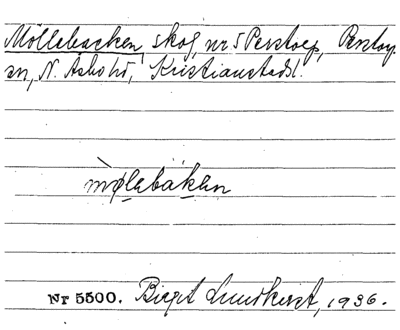 Möllebacken, skog, nr 5 Perstorp, Perstorp
sn, N. Åsbo hd, Kristianstads l.
mø̀lebakən
Nr 5500. Birgit Lundkvist, 1936.